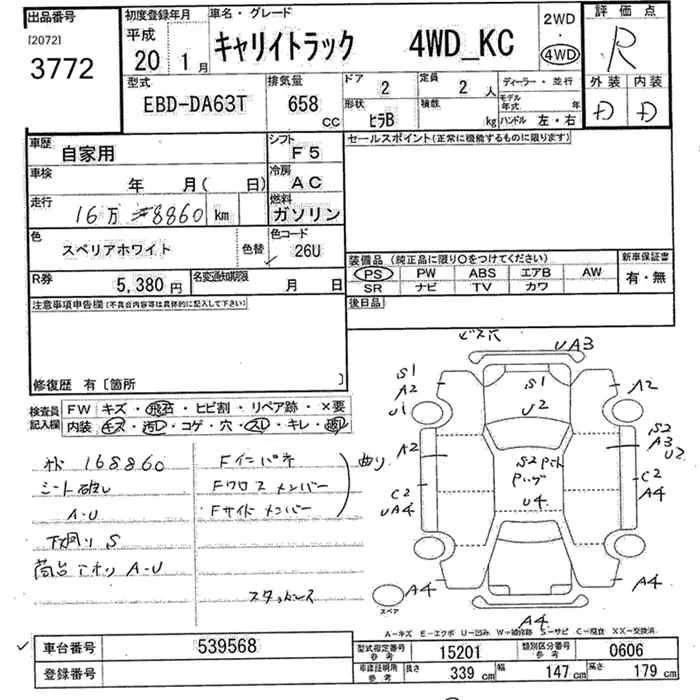 出品番号
[2072]
3772
初度登録年月
平成
20 1月
車名・グレード
キャリイトラック 4WD_KC
2WD
・
4WD
評価点
R
外装 内装
D D
型式
EBD-DA63T
排気量
658
CC
ドア
2
定員
2 人
形状
ヒラB
積載
kg
ディーラー・並行
モデル年式 年
ハンドル 左・右
車歴
自家用
シフト
F5
車検
年 月( 日)
冷房
AC
走行
16万 #8860 km
燃料
ガソリン
色
スペリアホワイト
色替
色コード
26U
R券
5,380 円
名変通知期限
月 日
セールスポイント(正常に機能するものに限ります)
装備品 (純正品に限り○をつけてください)
新車保証書
PS PW ABS エアB AW
有・無
SR ナビ TV カワ
後日品
注意事項申告欄(不具合内容等は具体的に記入して下さい)
修復歴 有〔箇所 〕
検査員記入欄
FW キズ・飛石・ヒビ割・リペア跡・×要
内装 キズ・汚レ・コゲ・穴・スレ・キレ・破レ
168860
シート破レ
A-U
下回り S
荷台アオリ A-U
Fインパネ
Fクロスメンバー
Fサイドメンバー
曲り
スタッドレス
ビス穴
UA3
S1
A2
U1
S1
U2
A2
A2
S2
A3
U2
S2
U4
C2
UA4
C2
A4
A4
A4
A4
スペア
A-キズ E-エクボ U-凹み W-補修跡 S-サビ C-腐食 XX-交換済
車台番号
539568
登録番号
型式指定番号
参考
15201
類別区分番号
参考
0606
車庫証明用
参考
長さ
339 cm
幅
147 cm
高さ
179 cm